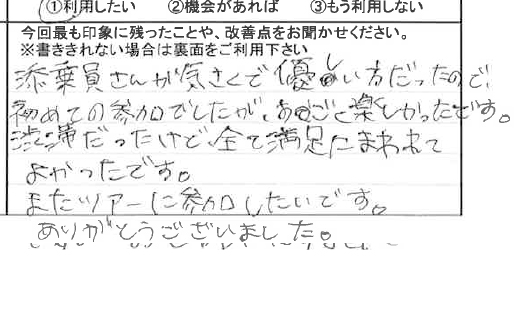 ①利用したい ②機会があれば ③もう利用しない
今回最も印象に残ったことや、改善点をお聞かせください。
※書ききれない場合は裏面をご利用下さい
添乗員さんが気さくで優しい方だったので、
初めての参加でしたが、すごく楽しかったです。
渋滞だったけど、全て満足にまわれて
よかったです。
またツアーに参加したいです。
ありがとうございました。